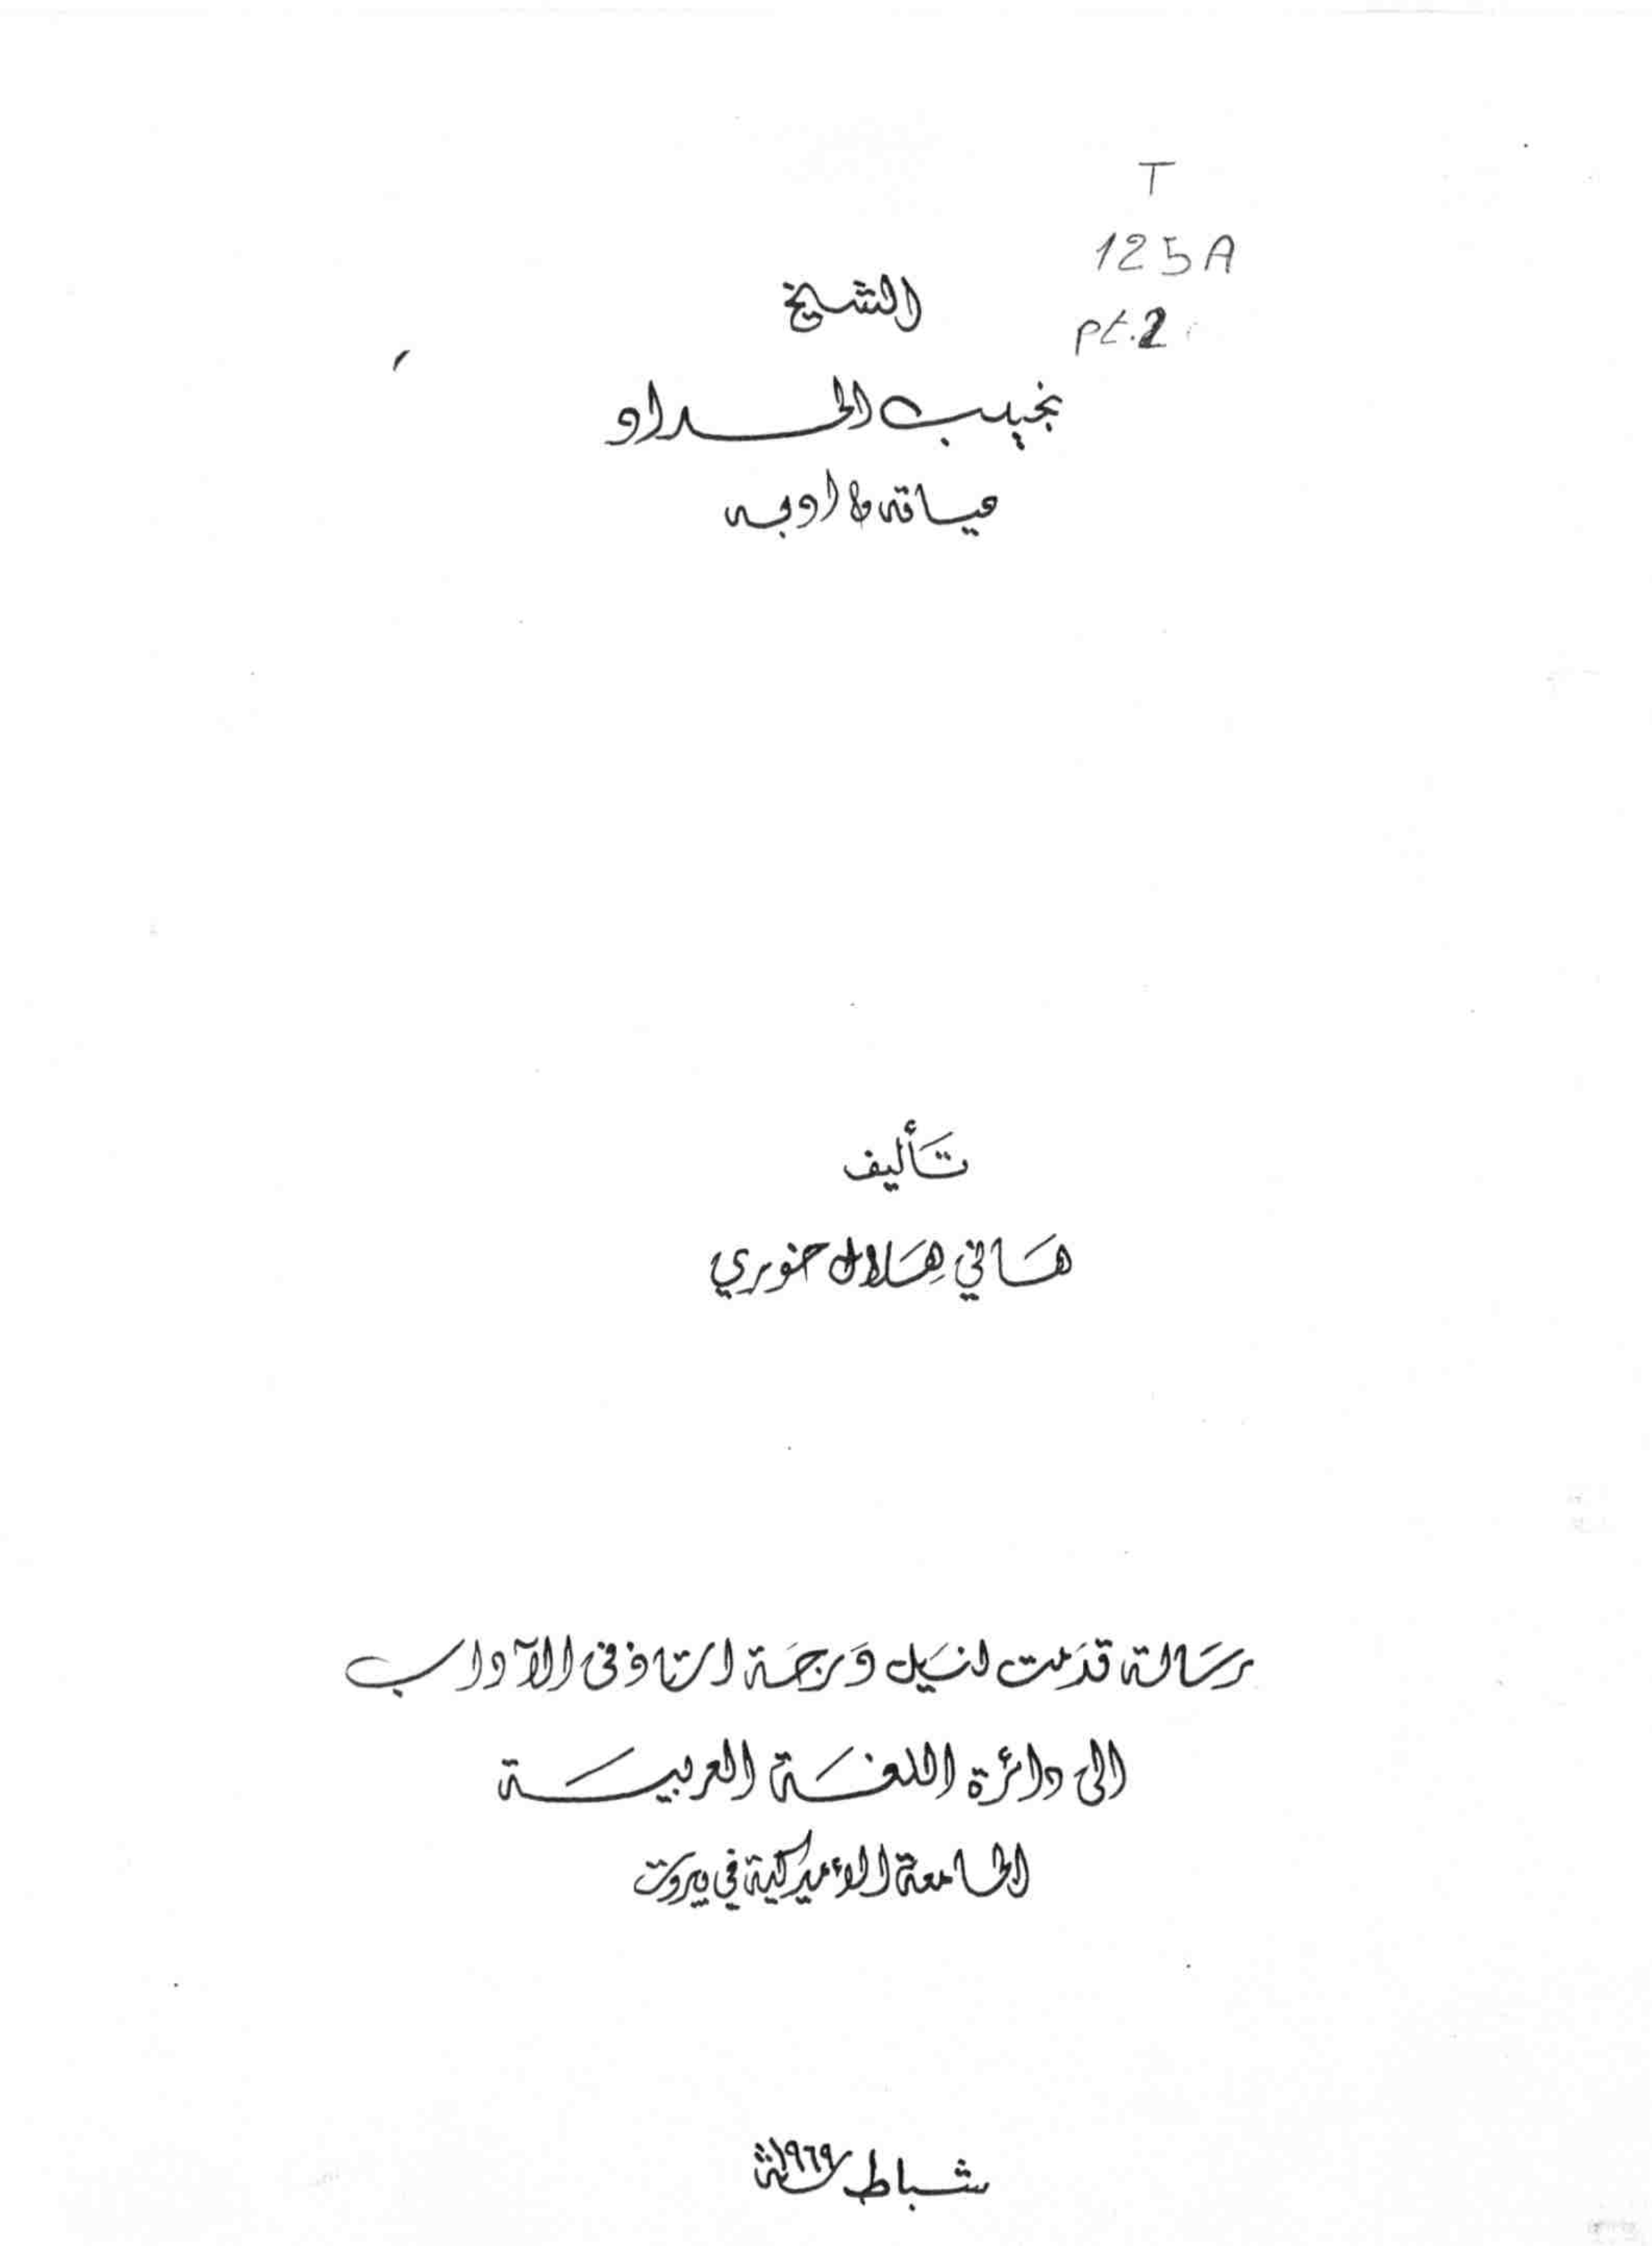 T
125A
pt.2
الشيخ
نجيب الحداد
حياته وادبه
تأليف
هاني هلال خوري
رسالة قدمت لنيل درجة استاذ في الآداب
الى دائرة اللغة العربية
الجامعة الأميركية في بيروت
شباط سنة ١٩٦٩